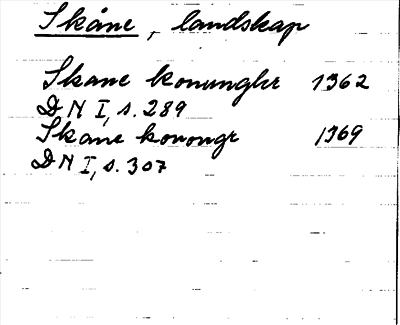 Skåne, landskap
Skane konungher 1362
DN I, s. 289
Skane konongr 1369
DN I, s. 307